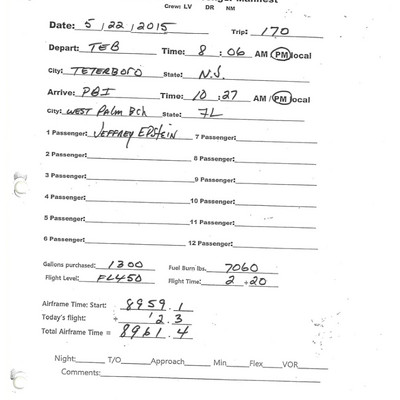 Manifest
Crew: LV DR NM
Date: 5/22/2015 Trip: 170
Depart: TEB Time: 8:06 AM PM local
City: TETERBORO State: N.J.
Arrive: PBI Time: 10:27 AM / PM local
City: WEST PALM BCH State: FL
1 Passenger: JEFFREY EPSTEIN 7 Passenger:
2 Passenger: 8 Passenger:
3 Passenger: 9 Passenger:
4 Passenger: 10 Passenger:
5 Passenger: 11 Passenger:
6 Passenger: 12 Passenger:
Gallons purchased: 1300 Fuel Burn lbs. 7060
Flight Level: FL450 Flight Time: 2 + 20
Airframe Time: Start: 8959.1
Today's flight: + 2.3
Total Airframe Time = 8961.4
Night: T/O Approach Min Flex VOR
Comments: